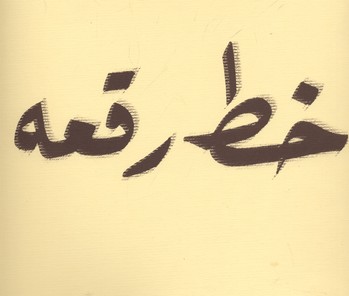 خط رقعه